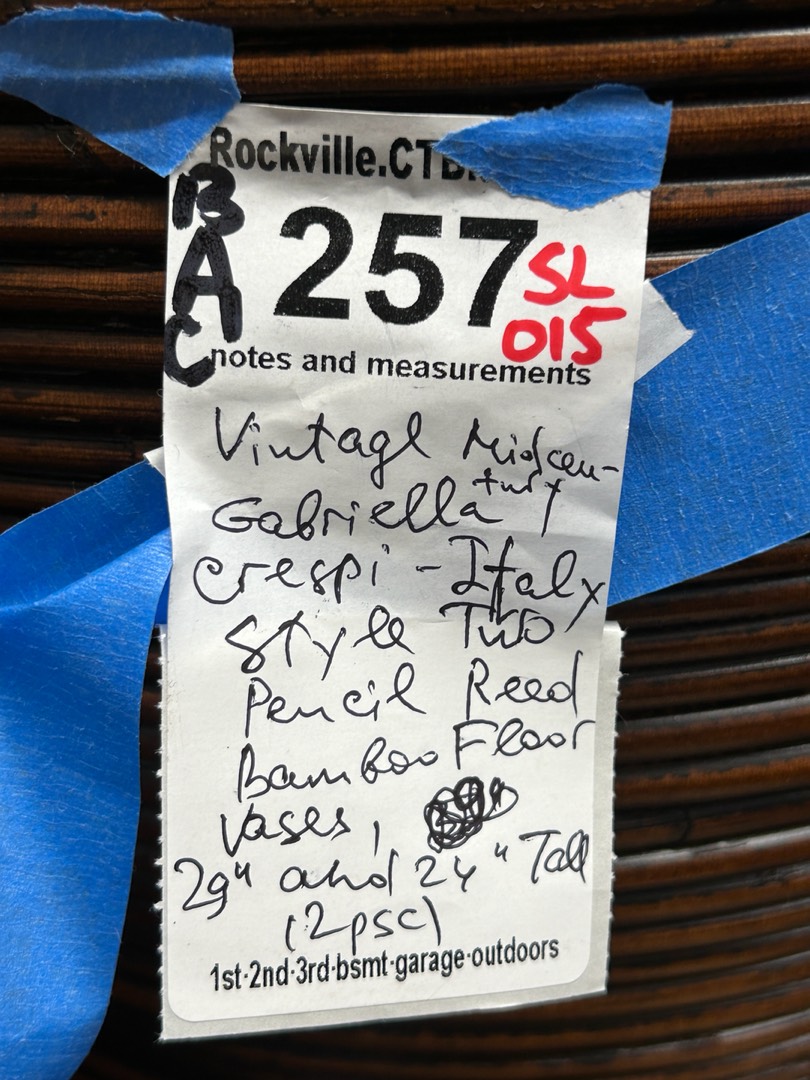 Rockville.CT
B
A
C
257
SL
015
notes and measurements
Vintage Midcen-
tury
Gabriella
Crespi - Italy
Style Two
Pencil Reed
Bamboo Floor
Vases,
29" and 24" Tall
(2psc)
1st·2nd·3rd·bsmt·garage·outdoors